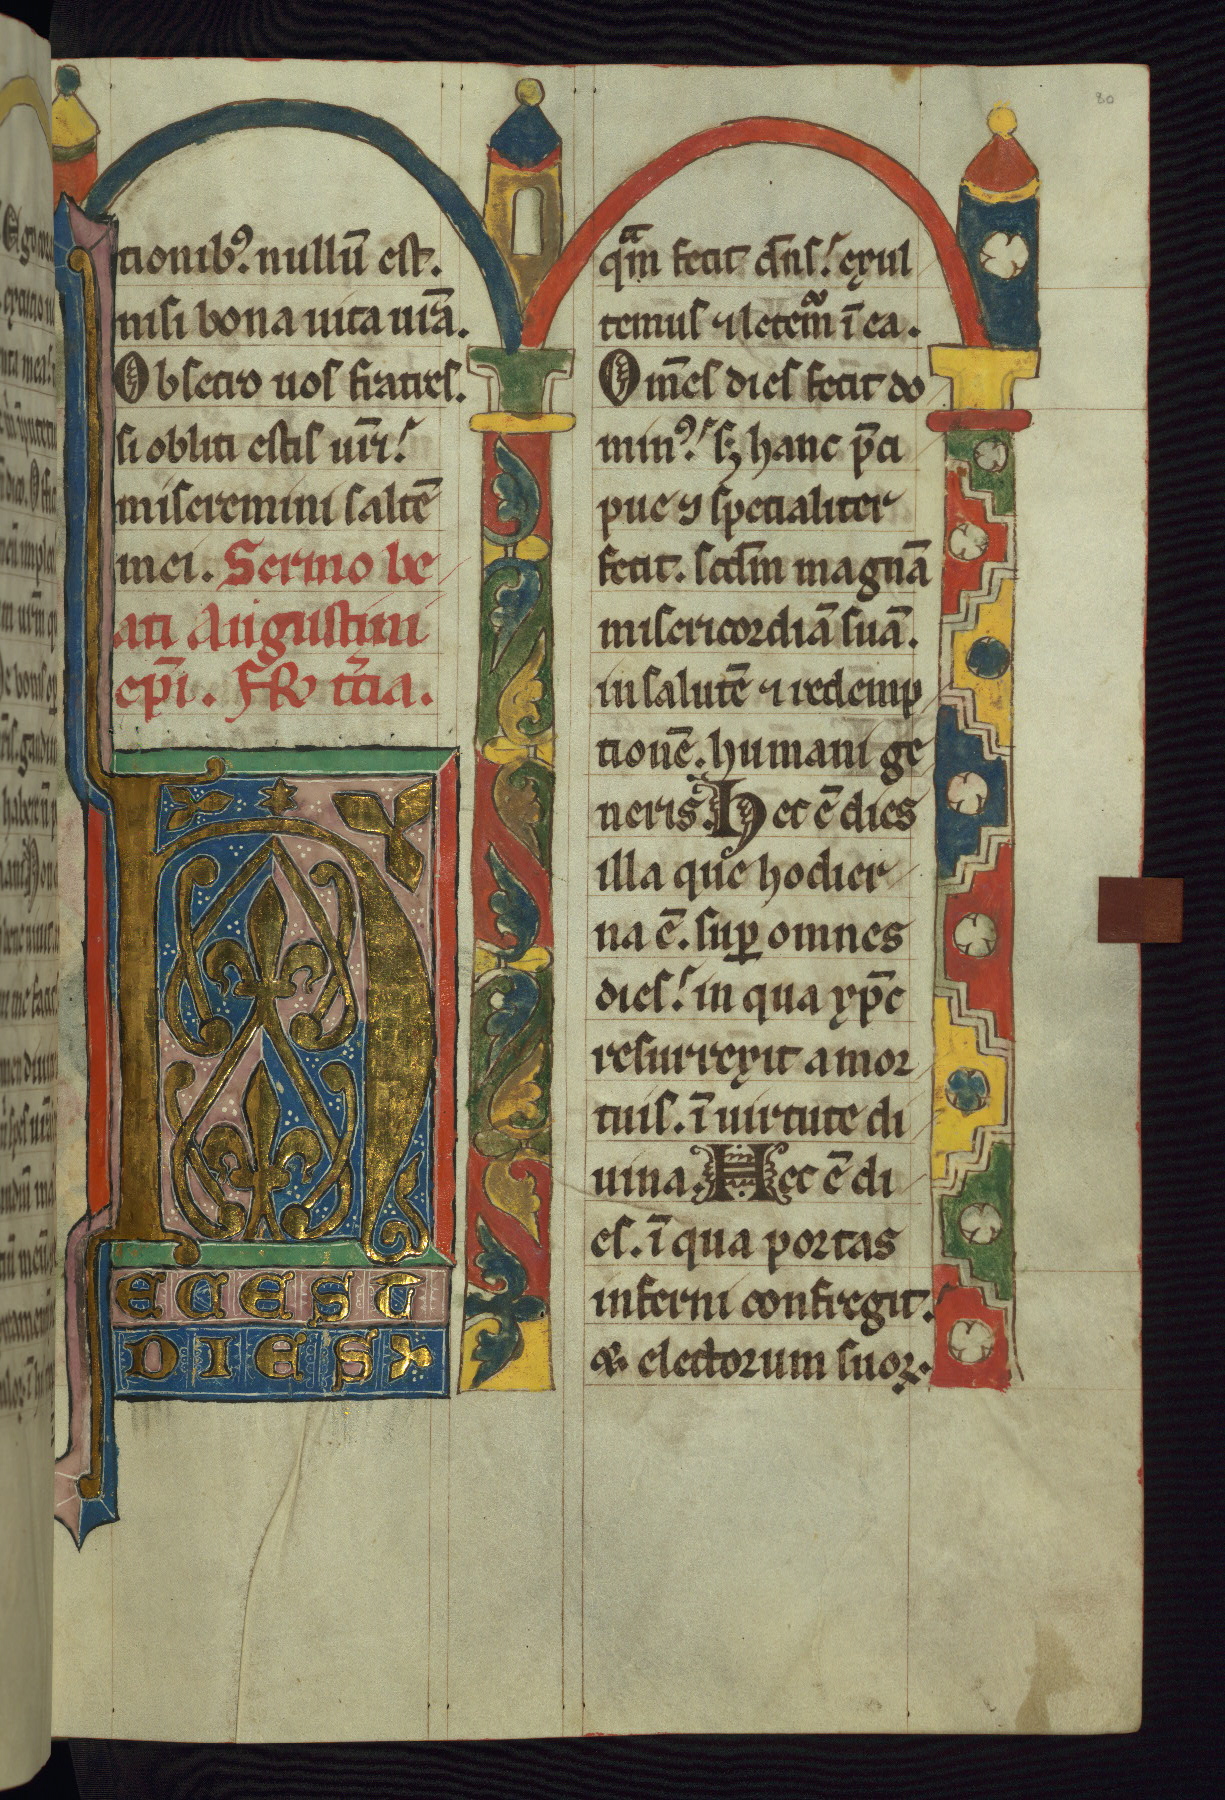 80
tionibꝰ nullū est.
nisi bona uita uīa.
Obsecro uos fratres.
si obliti estis uīr!
miseremini saltē
mei. Sermo be
ati Augustini
ep̄i. FR t͛cia.
H
EC EST
DIES
qͣm fecit dn̄s! exul
temus ⁊ letem̄ ī ea.
Om̄es dies fecit do
minꝰ! sꝫ hanc p̄ci
pue ꝯ specialiter
fecit. scd̄m magnā
misericordiā suā.
in salutē ⁊ redemp
tionē. humani ge
neris. Hec ē dies
illa que hodier
na ē. suꝑ omnes
dies! in qua xp̄c
resurrexit a mor
tuis. ī uirtute di
uina. Hec ē di
es. ī qua portas
inferni confregit.
&. electorum suoꝝ.